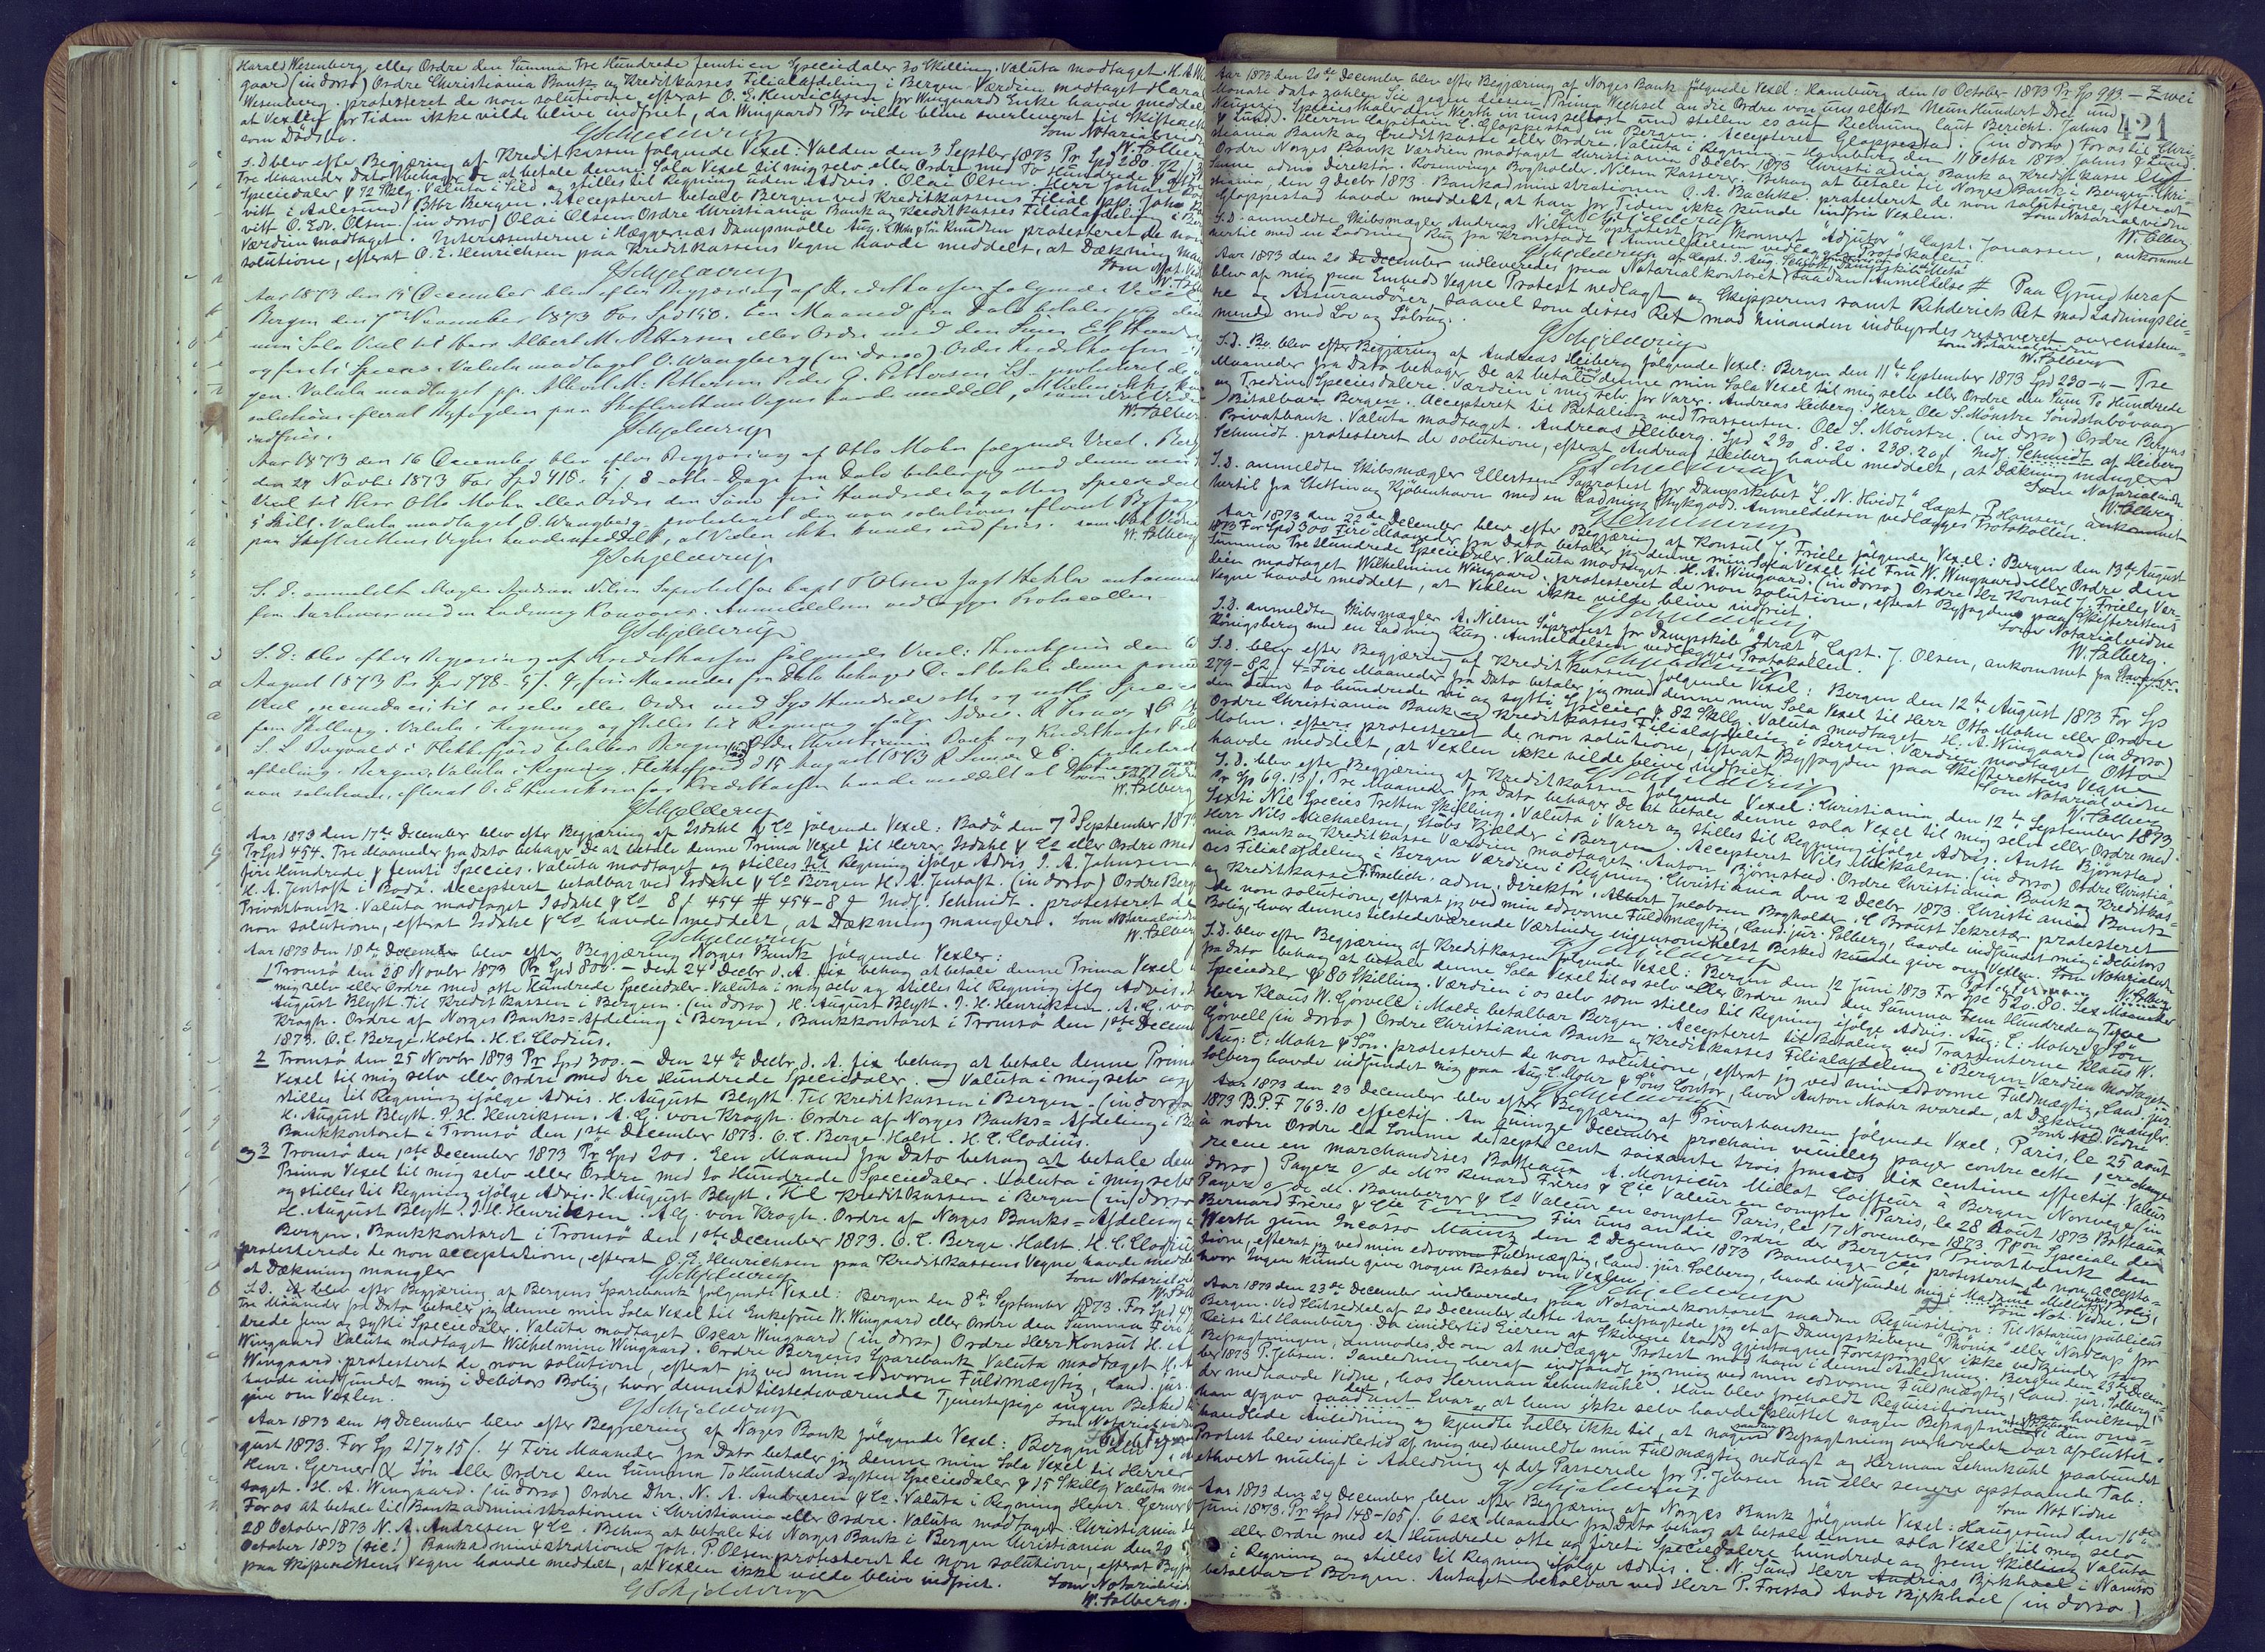 Harald Wesenberg eller Ordre den Summa Tre Hundrede femti en Speciedaler 30 Skilling. Valuta modtaget. H. A. Win
gaard (in dorso) Ordre Christiania Bank og Kreditkasses Filialafdeling i Bergen. Værdien modtaget Hara
Wesenberg. protesteret de non solutione, efterat O. E. Henrichsen for Wingaards Enke havde meddel
at Vexlen for Tiden ikke vilde blive indfriet, da Wingaards Bo vilde blive overleveret til Skifteret
som Dødsbo.
GSchjelderup
Som Notarialvidne
W. Solberg
S. D. blev efter Begjæring af Kreditkassen følgende Vexel: Valden den 3 Septbr 1873 Pr Spd 280. 72
Tre Maaneder Dato behager De at betale denne Sola Vexel til mig selv eller Ordre med To Hundrede &
Speciedaler & 72 Skilg. Valuta i Sild og stilles til Regning uden Advis. Olai Olsen. Herr Johan
vitt i Aalesund Btbr Bergen. Accepteret betalb Bergen ved Kreditkassens Filial pp. John
vitt O. Edv. Olsen. (in dorso) Olai Olsen Ordre Christiania Bank og Kreditkasses Filialafdeling i Ber
Værdien modtaget. Interessenterne i Hæggernæs Dampmølle Aug. C. Mohr & Søn Knudsen protesteret de non
solutione, efterat O. E. Henrichsen paa Kreditkassens Vegne havde meddelt, at Dækning man
GSchjelderup
Som Not. Vid
W. Solb
Aar 1873 den 15 December blev efter Begjæring af Kreditkassen følgende Vexel
Bergen den 7de November 1873 For Spd 140. Een Maaned fra Dato betaler jeg den
min Sola Vexel til Herr Albert M. Pettersen eller Ordre med den Sum Et Hund
og firti Species. Valuta modtaget O. Waagberg (in dorso) Ordre Kreditkassen
gen. Valuta modtaget pp. Albert M. Pettersen Peder G. Pettersen protesteret de
solutione efterat Byfogden paa Skifterettens Vegne havde meddelt, at Vexlen ikke kun
indfries.
som Not Vidne
W. Solberg
GSchjelderup
Aar 1873 den 16 December blev efter Begjæring af Otto Mohn følgende Vexel. Berg
den 24 Novbr 1873 For Spd 418. 5 / 8 - otte - Dage fra Dato betaler jeg mod denne min
Vexel til Herr Otto Mohn eller Ordre den Sum fire Hundrede og atten Speciedal
5 Skill. Valuta modtaget O. Waagberg. protesteret den non solutione efterat Byfog
paa Skifterettens Vegne havde meddelt, at Vexlen ikke kunde indfries. som Not Vidne
W. Solberg
GSchjelderup
S. D. anmeldt Mægler Andreas Nilsen Søprotest for Capt T Olsen Jagt Hekla ankommet
fra Aarhuus med en Ladning Kornvarer. Anmeldelsen vedlægges Protocollen.
GSchjelderup
S. D. blev efter Begjæring af Kreditkassen følgende Vexel:
August 1873 Por Spd 798 - 5/. 4, fire Maaneder fra Dato behager De at betale denne prima
til os selv eller Ordre med Syv Hundrede otte og nitti Specie
fem Skilling. Valuta i Regning og stilles til Regning ifølge Advis.
S. L. Sigvald i Flekkefjord betalbar Bergen (in dorso) Ordre Christiania Bank og Kreditkasses Fili
afdeling. Bergen. Valuta i Regning. Flekkefjord d 15 August 1873
non solutione, efterat O. E. Henrichsen for Kreditkassen havde meddelt at Dækning man
W. Solberg
GSchjelderup
Aar 1873 den 17de December blev efter Begjæring af Isdahl & Co følgende Vexel: Bodø den 7d September 1873
Pr Spd 454. Tre Maaneder fra Dato behager De at betale denne Prima Vexel til Herrer Isdahl & Co eller Ordre med
fire Hundrede & femti Species. Valuta modtaget og stilles til Regning ifølge Advis J. A. Johnsen
H. A. Jentoft i Bodø. Accepteret betalbar ved Isdahl & Co Bergen H. A. Jentoft. (in dorso) Ordre Berg
Privatbank. Valuta modtaget Isdahl & Co 8/ 454 # 454-8/ Indf. Schmidt. protesteret de
non solutione, efterat Isdahl & Co havde meddelt, at Dækning mangler. Som Notarialvidne
W. Solberg
GSchjelderup
Aar 1873 den 18de December blev efter Begjæring Norges Bank følgende Vexler:
1 Tromsø den 28 Novbr 1873 Pr Spd 800. - Den 24d Decbr d. A. fix behag at betale denne Prima Vexel
mig selv eller Ordre med otte Hundrede Speciedaler. Valuta i mig selv og stilles til Regning iflg Advis.
August Blytt. Til Kreditkassen i Bergen. (in dorso) H. August Blytt. J. H. Henriksen. A. G. von
Krogh. Ordre af Norges Banks-Afdeling i Bergen. Bankkontoret i Tromsø den 1ste Decem
1873. O. C. Berge. Holst. H. C. Clodius.
2 Tromsø den 25 Novbr 1873 Pr Spd 300. - Den 24de Decbr d. A. fix behag at betale denne Prima
Vexel til mig selv eller Ordre med tre Hundrede Speciedaler. - Valuta i mig selv og
stilles til Regning ifølge Advis. H. August Blytt. Til Kreditkassen i Bergen. (in dorso
H. August Blytt. J. H. Henriksen. A. G. von Krogh. Ordre af Norges Banks-Afdeling i B
Bankkontoret i Tromsø den 1ste December 1873. O. C. Berge. Holst. H. C. Clodius.
og 3 Tromsø den 1ste December 1873 Pr Spd 200. Een Maaned fra Dato behag at betale den
Prima Vexel til mig selv eller Ordre med to Hundrede Speciedaler. Valuta i mig selv
og stilles til Regning ifølge Advis. H. August Blytt. Til Kreditkassen i Bergen (in dorso
H. August Blytt. J. H. Henriksen. A. G. von Krogh. Ordre af Norges Banks-Afdeling i
Bergen. Bankkontoret i Tromsø den 1ste December 1873. O. C. Berge. Holst. H. C. Clodius
protesterede de non acceptatione, efterat O. E. Henrichsen paa Kreditkassens Vegne havde medde
at Dækning mangler
GSchjelderup
Som Notarialvid
W. Solb
S. D. blev efter Begjæring af Bergens Sparebank følgende Vexel: Bergen den 8de September 1873. For Spd 47
Tre Maaneder fra Dato betaler jeg denne min Sola Vexel til Enkefrue W. Wingaard eller Ordre den Summa Fire H
drede fem og sytti Speciedaler. Valuta modtaget Oscar Wingaard (in dorso) Ordre Herr Konsul H. A
Wingaard Valuta modtaget Wilhelmine Wingaard. Ordre Bergens Sparebank Valuta modtaget H. A
Wingaard. protesteret de non solutione, efterat jeg ved min edsvorne Fuldmægtig, Cand. jur.
havde indfundet mig i Debitors Bolig, hvor dennes tilstedeværende Tjenestepige ingen Besked k
give om Vexlen.
GSchjelderup
Som Notarialvidne
Aar 1873 den 19 December blev efter Begjæring af Norges Bank følgende Vexel: Bergen den
gust 1873. For Sp 217 " 15/. 4 Fire Maaneder fra Dato betaler jeg denne min Sola Vexel til Herrer
Henr. Gerner & Søn eller Ordre den Summa To Hundrede sytten Speciesdaler & 15 Skillg Valuta mo
taget. H. A. Wingaard. (in dorso) Ordre Dhr. N. A. Andresen & Co. Valuta i Regning Henr. Gerner
For os at betale til Bankadministrationen i Christiania eller Ordre. Valuta modtaget Christiania d
28 October 1873 N. A. Andresen & Co. Behag at betale til Norges Bank i Bergen Christiania den 29
October 1873 (sic!) Bankadministrationen Joh. P. Olsen protesteret de non solutione, efterat Byfo
paa Skifterettens Vegne havde meddelt, at Vexlen ikke vilde blive indfriet.
Som Notarialvidn
GSchjelderup
W. Solberg.
421
Aar 1873 den 20de December blev efter Begjæring af Norges Bank følgende Vexel: Hamburg den 10 October 1873 Pr Sp 993 - Zwei
Monate dato zahlen Sie gegen diesen Prima Wechsel an die Ordre von uns selbst Neun Hundert Drei und
Neunzig Speciesthaler den Werth in uns selbst und stellen es auf Rechnung laut Bericht. Jahns
& Lund. Herrn Capitain C. Gloppestad in Bergen. Accepteret Gloppestad. (in dorso) For os til Chri-
stiania Bank og Creditkasse eller Ordre. Valuta i Regning - Hamburg den 11 Octbr 1873. Jahns & Lund
Ordre Norges Bank Værdien modtaget Christiania 8 Decbr 1873 Christiania Bank og Kreditkasse
adm. Direktør. Rosenvinge Bogholder. Nilsen Kasserer. Behag at betale til Norges Bank i Bergen. Chri-
stiania, den 9 Decbr 1873. Bankadministrationen O. A. Bachke. protesteret de non solutione, efterat
Gloppestad havde meddelt, at han for Tiden ikke kunde indfrie Vexlen. Som Notarialvidne
GSchjelderup
W. Solberg
S. D. anmeldte Skibsmægler Andreas Nilsen Søprotest for Skonnert "Adjutor", Capt. Jonassen, ankommet
hertil med en Ladning Rug fra Kronstadt. Anmeldelsen vedlægges Protokollen.
GSchjelderup
Aar 1873 den 20de December indleveredes paa Notarialkontoret saadan Anmeldelse # Paa Grund heraf
blev af mig paa Embeds Vegne Protest nedlagt og Skipperens samt Rehderiets Ret mod Ladningseie-
re og Assurandører, saavel som disses Ret mod hinanden indbyrdes reserveret overensstem-
mende med Lov og Søbrug.
Som Notarialvidne
W. Solberg
GSchjelderup
S. D. blev efter Begjæring af Andreas Heiberg følgende Vexel: Bergen den 11te September 1873 Spd 230 - " - Tre
Maaneder fra Dato behager De at betale mod denne min Sola Vexel til mig selv eller Ordre den Sum To Hundrede
og Tredive Speciesdalere. Værdien i mig selv for Varer. Andreas Heiberg. Herr Ole S. Mønstre Søndstabøvaag
Bitalbar Bergen. Accepteret til Betaling ved Trassenten. Ole S. Mønstre. (in dorso) Ordre Bergens
Privatbank. Valuta modtaget. Andreas Heiberg. Spd 230. 8.20. 238.20/ Indf. Schmidt af Heiberg
Schmidt. protesteret de solutione, efterat Andreas Heiberg havde meddelt, at Dækning mangler
Som Notarialvidne
W. Solberg
GSchjelderup
S. D. anmeldte Skibsmægler Ellertsen Søprotest for Dampskibet "L. N. Hvidt" Capt. P. Hansen, ankommet
hertil fra Stettin og Kjøbenhavn med en Ladning Stykgods. Anmeldelsen vedlægges Protokollen.
GSchjelderup
Aar 1873 den 22de December blev efter Begjæring af Konsul J. Friele følgende Vexel: Bergen den 13de August
1873 For Spd 300 Fire Maaneder fra Dato betaler jeg denne min Sola Vexel til Fru W. Wingaard eller Ordre den
Summa Tre Hundrede Speciedaler. Valuta modtaget. H. A. Wingaard. (in dorso) Ordre Hr Konsul J. Friele, Vær-
dien modtaget Wilhelmine Wingaard. protesteret de non solutione, efterat Byfogden paa Skifterettens
Vegne havde meddelt, at Vexlen ikke vilde blive indfriet.
Som Notarialvidne
W. Solberg.
GSchjelderup
S. D. anmeldte Skibsmægler A. Nilsen Søprotest for Dampskib "Idræt", Capt. J. Olsen, ankommet fra Stavanger
Königsberg med en Ladning Rug. Anmeldelsen vedlægges Protokollen.
GSchjelderup
S. D. blev efter Begjæring af Kreditkassen følgende Vexel: Bergen den 12te August 1873 For Sp
279-82/ 4-Fire Maaneder fra Dato betaler jeg mod denne min Sola Vexel til Herr Otto Mohn eller Ordre
den Sum to hundrede ni og sytti Specier & 82 Skillg. Valuta modtaget H. A. Wingaard (in dorso)
Ordre Christiania Bank og Kreditkasses Filialafdeling i Bergen. Værdien modtaget Otto
Mohn. protesteret de non solutione, efterat Byfogden paa Skifterettens Vegne
havde meddelt, at Vexlen ikke vilde blive indfriet.
Som Notarialvidne
W. Solberg
GSchjelderup
S. D. blev efter Begjæring af Kreditkassen følgende Vexel: Christiania den 12te September 1873
Pr Sp 69. 13/. Tre Maaneder fra Dato behager De at betale denne sola Vexel til mig selv eller Ordre med
Sexti Nie Species Tretten Skilling. Valuta i Varer og stilles til Regning ifølge Advis. Anth Bjørnstad.
Herr Nils Michaelsen, Støbs Kjelder i Bergen. Accepteret Nils Mikalsen. (in dorso) Ordre Christia-
nia Bank og Kreditkasse Værdien modtaget. Anton Bjørnstad. Ordre Christiania Bank og Kreditkas-
ses Filialafdeling i Bergen Værdien i Regning. Christiania den 2 Decbr 1873. Christiania Bank
og Kreditkasse F. Frølich. adm. Direktør. Albert Jacobsen Bogholder. C Broust Sekretær. protesteret
de non solutione, efterat jeg ved min edsvorne Fuldmægtig, Cand. jur. Solberg, havde indfundet mig i Debitors
Bolig, hvor dennes tilstedeværende Værtinde ingensomhelst Besked kunde give om Vexlen. Som Notarialvidne
W. Solberg
GSchjelderup
S. D. blev efter Begjæring af Kreditkassen følgende Vexel: Bergen den 12 Juni 1873 For Spec 520. 80. Sex Maaneder
fra Dato behag at betale denne Sola Vexel til os selv eller Ordre med den Summa Fem Hundrede og Tyve
Speciedaler & 80 Skilling. Værdien i os selv som stilles til Regning ifølge Advis. Aug: C: Mohr & Søn
Herr Klaus W. Gørvell i Molde betalbar Bergen. Accepteret til Betaling ved Trassenterne Klaus W.
Gørvell (in dorso) Ordre Christiania Bank og Kreditkasses Filialafdeling i Bergen Værdien modtaget
Aug: C: Mohr & Søn. protesteret de non solutione, efterat jeg ved min edsvorne Fuldmægtig, Cand. jur.
Solberg havde indfundet mig paa Aug. C. Mohr & Søns Contor, hvor Anton Mohr svarede, at Dækning mangler.
Som Not. Vidne
GSchjelderup
Aar 1873 den 23 December blev efter Begjæring af Privatbanken følgende Vexel: Paris, le 25 aout
1873 B. P. F 763.10 effectif. Au quinze Decembre prochain veuillez payer contre cette 1ere de change
à notre Ordre la Somme de sept cent soixante trois francs dix centime effectif. Valeur
recue en marchandises Botteaux A. Monsieur Millot Coiffeur à Bergen Norwege (in
dorso) Payez o/ de Mrs Renard Frères & Cie Valeur en compte. Paris, le 28 Aout 1873 Botteaux
Payez o/ de M. Bamberger & Co Valeur en compte Paris, le 17 Novembre 1873. Ppon Speciale de
Bernard Frères & Cie Für uns an die Ordre der Bergens Privatbank den
Werth zum Incasso Mainz den 2 Dezember 1873 Bamberger & Co protesteret de non accepta-
tione, efterat jeg ved min edsvorne Fuldmægtig, Cand. jur. Solberg, havde indfundet mig i Madame Millots Bolig,
hvor Ingen kunde give nogen Besked om Vexlen.
Som Not. Vidne.
GSchjelderup
Aar 1873 den 23de December indleveredes paa Notarialkontoret saadan Requisition: Til Notarius publicus
Bergen. Ved Slutseddel af 20 December dette Aar, befragtede jeg et af Dampskibene "Phönix" eller "Nordcap" for
Reise til Hamburg. Da imidlertid Eieren af Skibene trods gjentagne Forespørgsler ikke vedkjender sig
Befragtningen, anmodes De om at nedlægge Protest mod ham i denne Anledning. Bergen den 23de Decem-
ber 1873 P. Jebsen. I Anledning heraf indfandt jeg mig ved min edsvorne Fuldmægtig, Cand. jur. Solberg,
der medhavde Vidne, hos Herman Lehmkuhl. Han blev foreholdt Requisitionen, hvortil
han afgav saadant Svar, at han ikke selv havde afsluttet nogen Befragtning i den om-
handlede Anledning og kjendte heller ikke til, at nogen saadan Befragtning overhovedet var afsluttet.
Protest blev imidlertid af mig ved bemeldte min Fuldmægtig nedlagt og Herman Lehmkuhl paabundet
ethvert muligt i Anledning af det Passerede for P. Jebsen nu eller senere opstaaende Tab.
Som Not Vidne
GSchjelderup
Aar 1873 den 24 December blev efter Begjæring af Norges Bank følgende Vexel: Haugesund den 16de
Juni 1873. Pr Spd 148-105/. 6 sex Maaneder fra Dato behag at betale denne sola Vexel til mig selv
eller Ordre med et Hundrede otte og fireti Speciedalere hundrede og fem Skilling Valuta
i Regning og stilles til Regning ifølge Advis. C. N. Sund Herr Andreas Bjerkhoel i Namsos
betalbar i Bergen. Antaget betalbar ved Herr P. Frestad Andr Bjerkhoel (in dorso)